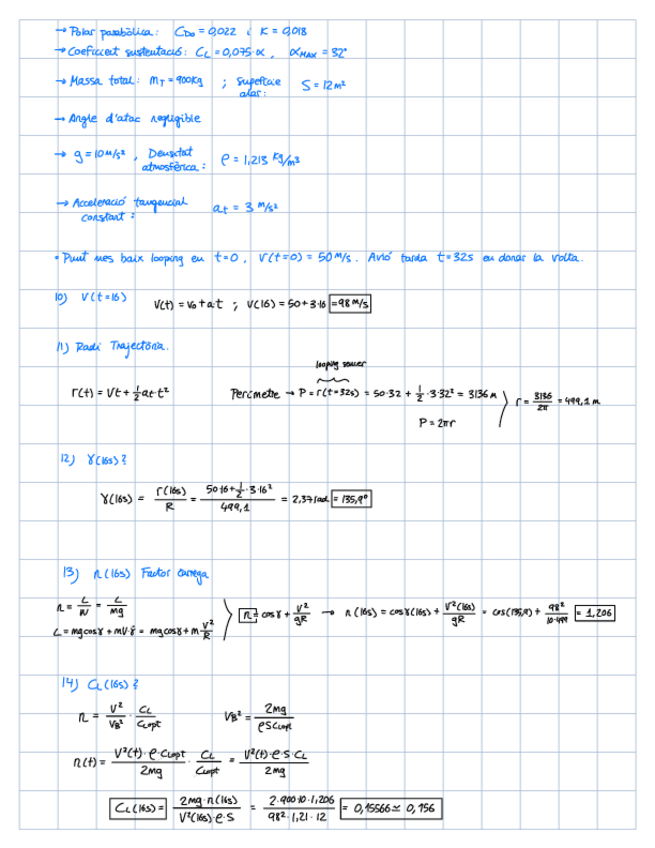 → Polar parabòlica: C_D0 = 0,022 i K = 0,018
→ Coeficient sustentació: C_L = 0,075·α, α_MAX = 32°
→ Massa total: m_T = 900kg ; Superfície alar: S = 12 m²
→ Angle d'atac negligible
→ g = 10 m/s², Densitat atmosfèrica: ρ = 1,213 kg/m³
→ Acceleració tangencial constant: a_t = 3 m/s²
• Punt mes baix looping en t=0, V(t=0) = 50 m/s. Avió tarda t=32s en donar la volta.
10) V(t=16) V(t) = V₀ + a·t ; V(16) = 50+3·16 = 98 m/s
11) Radi Trajectòria.
looping sencer
r(t) = Vt + 1/2 at·t² Perímetre → P = r(t=32s) = 50·32 + 1/2·3·32² = 3136 m r = 3136/2π = 499,1 m
P = 2πr
12) γ(16s)?
γ(16s) = r(16s)/R = (50·16 + 1/2·3·16²)/499,1 = 2,371 rad = 135,9°
13) n(16s) Factor carrega
n = L/W = L/mg
L = mgcosγ + mV·γ̇ = mgcosγ + m V²/R n = cosγ + V²/gR → n(16s) = cosγ(16s) + V²(16s)/gR = cos(135,9) + 98²/10·499 = 1,206
14) C_L(16s)?
n = V²/V_B² · C_L/C_Lopt V_B² = 2mg/ρSC_Lopt
n(t) = V²(t)·ρ·C_Lopt/2mg · C_L/C_Lopt = V²(t)·ρ·S·C_L/2mg
C_L(16s) = 2mg·n(16s)/V²(16s)·ρ·S = 2·900·10·1,206/98²·1,21·12 = 0,15566 ≃ 0,156